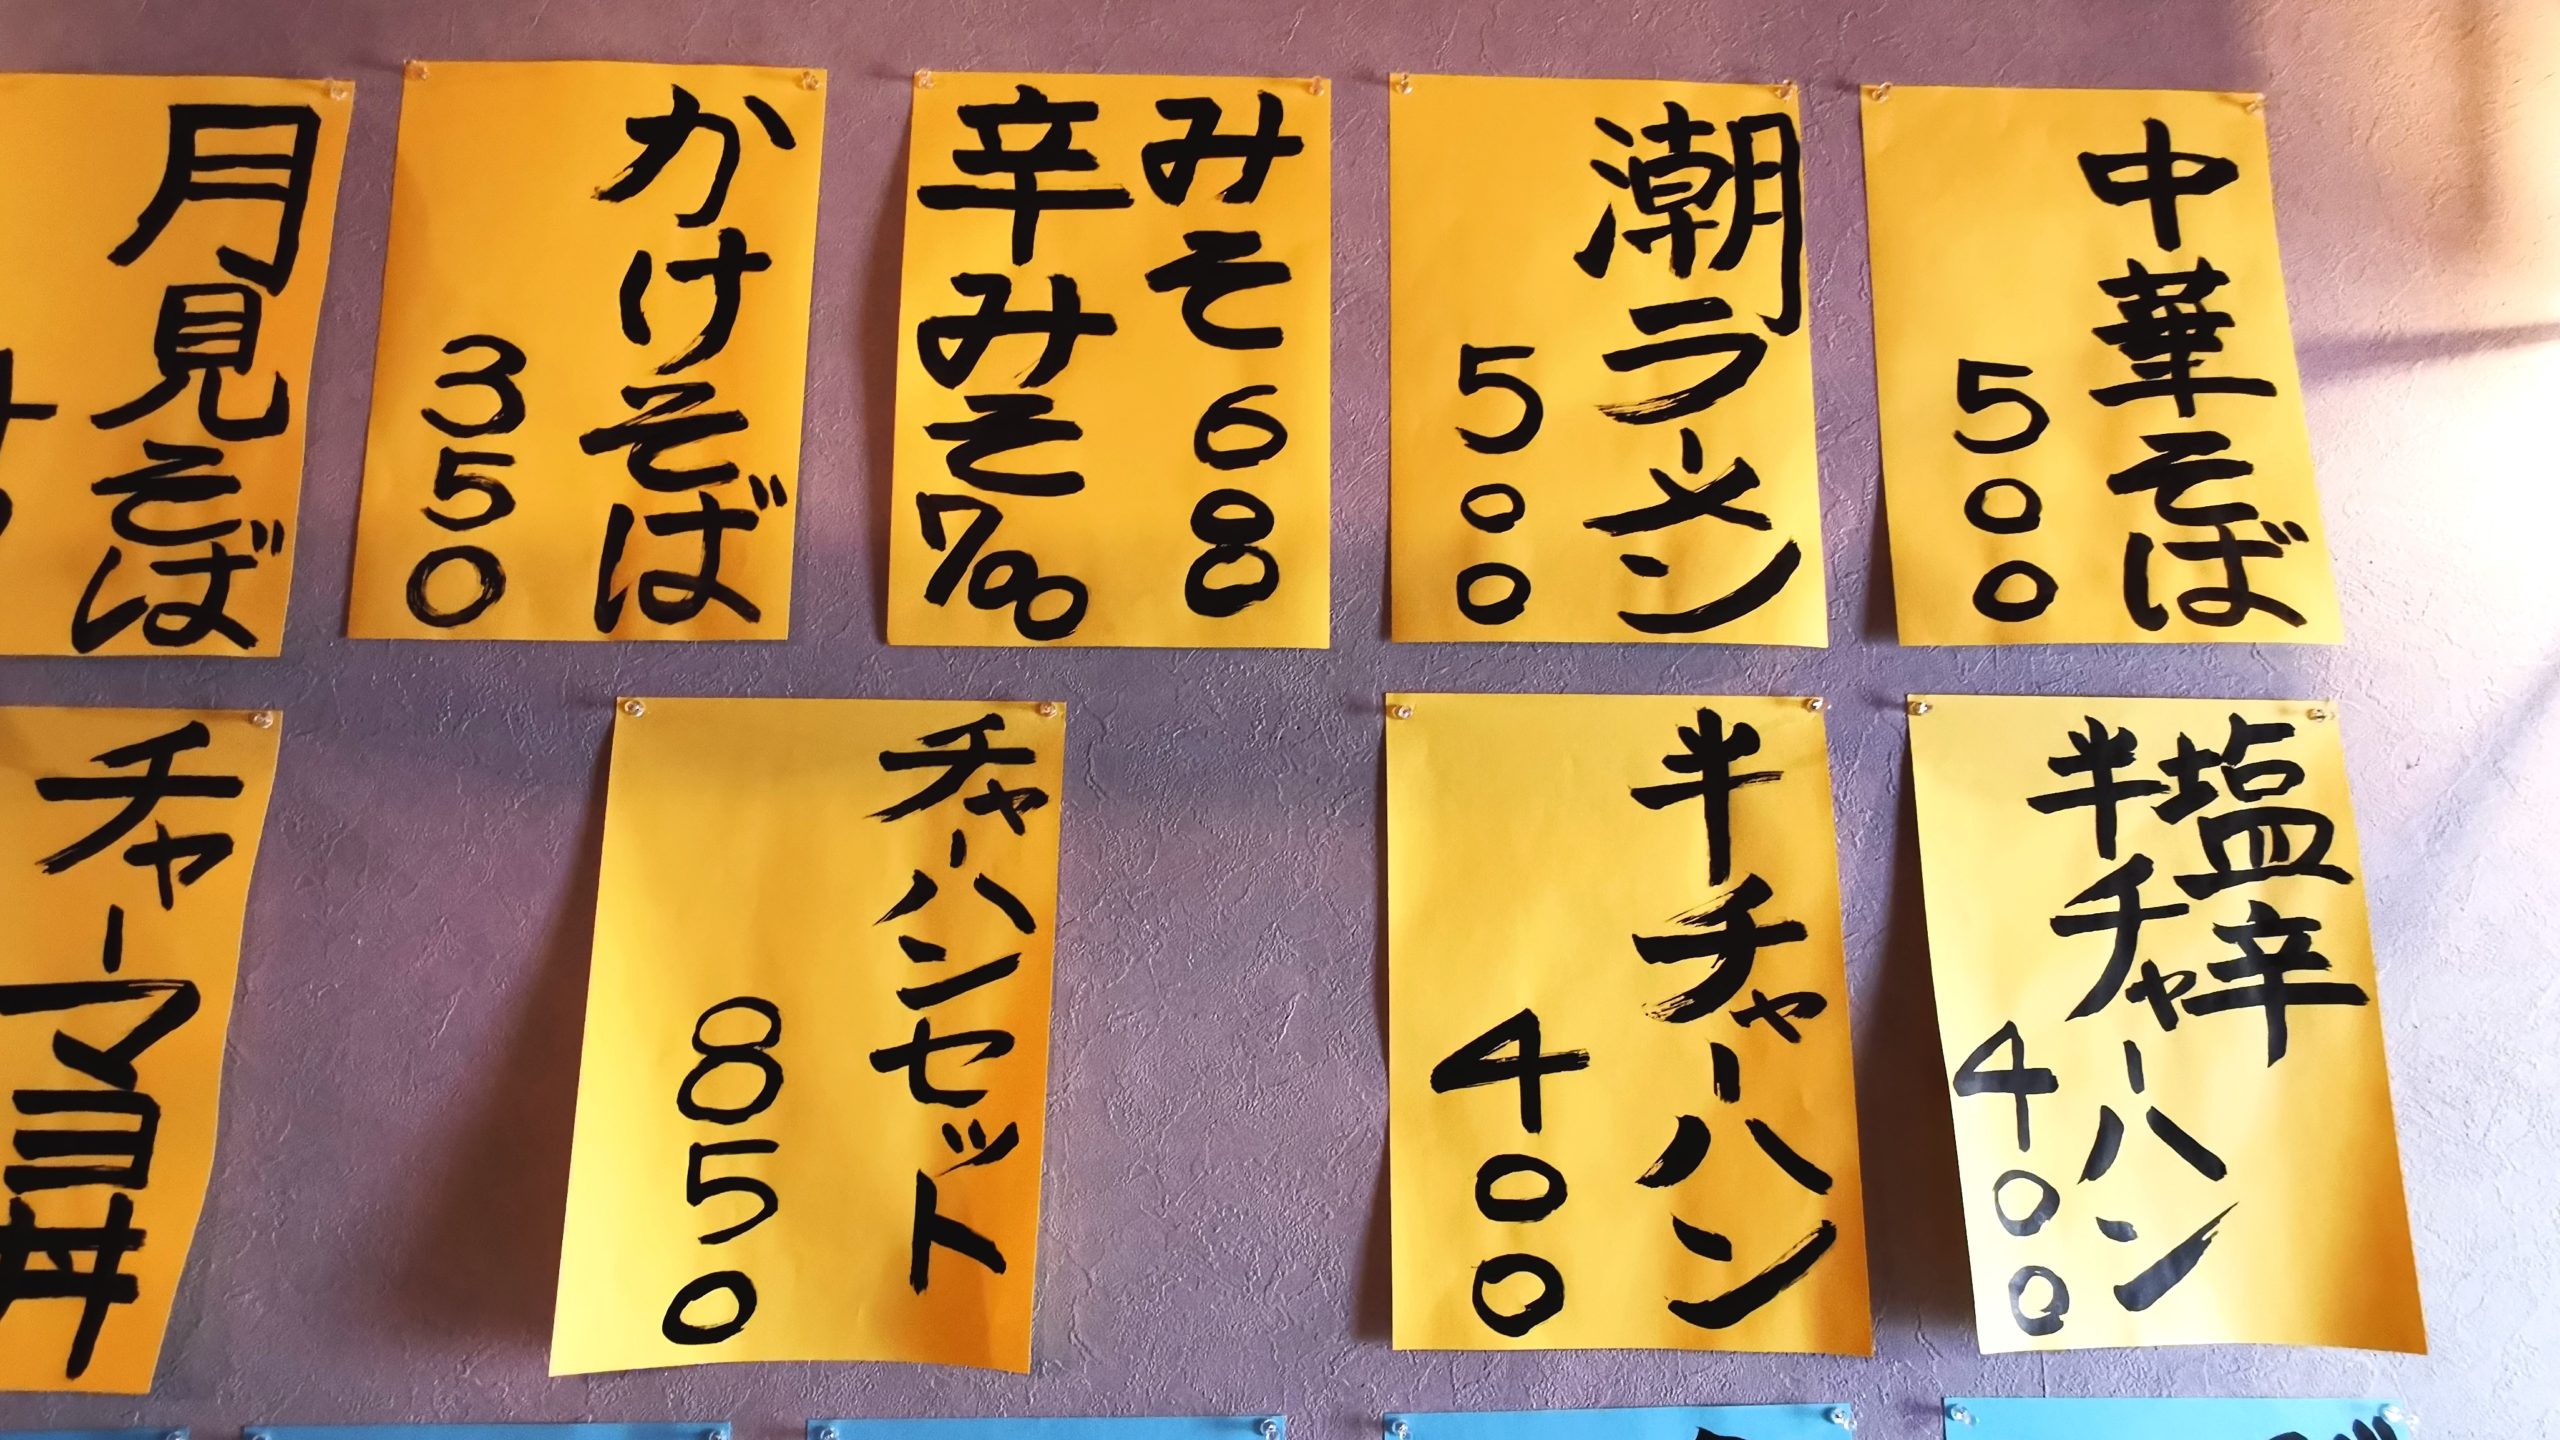 中華そば
500
潮ラーメン
500
みそ600
辛みそ700
かけそば
350
月見そば
塩辛
半チャーハン
400
半チャーハン
400
チャーハンセット
850
チャーマヨ丼